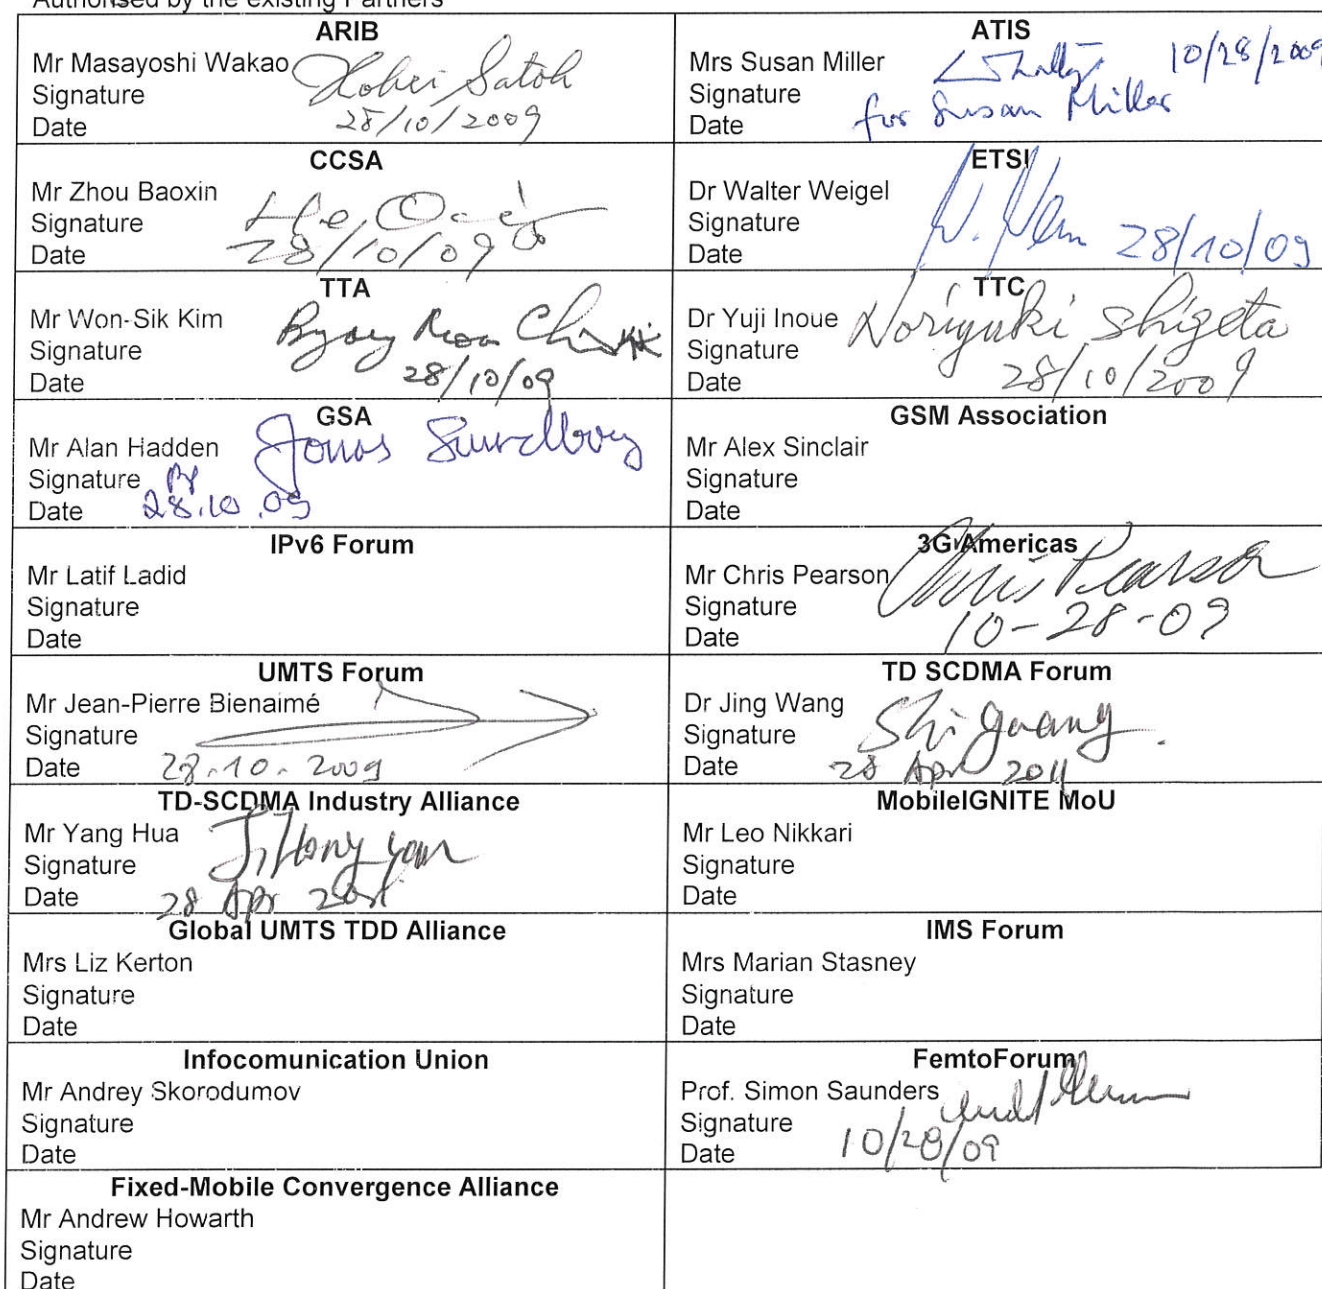 Authorised by the existing Partners
ARIB
Mr Masayoshi Wakao
Signature Kohei Satoh
Date 28/10/2009
ATIS
Mrs Susan Miller 10/28/2009
Signature
Date for Susan Miller
CCSA
Mr Zhou Baoxin
Signature
Date 28/10/09
ETSI
Dr Walter Weigel
Signature
Date 28/10/09
TTA
Mr Won-Sik Kim
Signature
Date 28/10/09
TTC
Dr Yuji Inoue Noriyuki Shigeta
Signature
Date 28/10/2009
GSA
Mr Alan Hadden Jonas Sundborg
Signature
Date 28.10.09
GSM Association
Mr Alex Sinclair
Signature
Date
IPv6 Forum
Mr Latif Ladid
Signature
Date
3G Americas
Mr Chris Pearson Chris Pearson
Signature
Date 10-28-09
UMTS Forum
Mr Jean-Pierre Bienaimé
Signature
Date 28.10.2009
TD SCDMA Forum
Dr Jing Wang
Signature
Date 28 Apr 2011
TD-SCDMA Industry Alliance
Mr Yang Hua
Signature
Date 28 Apr
MobileIGNITE MoU
Mr Leo Nikkari
Signature
Date
Global UMTS TDD Alliance
Mrs Liz Kerton
Signature
Date
IMS Forum
Mrs Marian Stasney
Signature
Date
Infocomunication Union
Mr Andrey Skorodumov
Signature
Date
FemtoForum
Prof. Simon Saunders
Signature
Date 10/28/09
Fixed-Mobile Convergence Alliance
Mr Andrew Howarth
Signature
Date